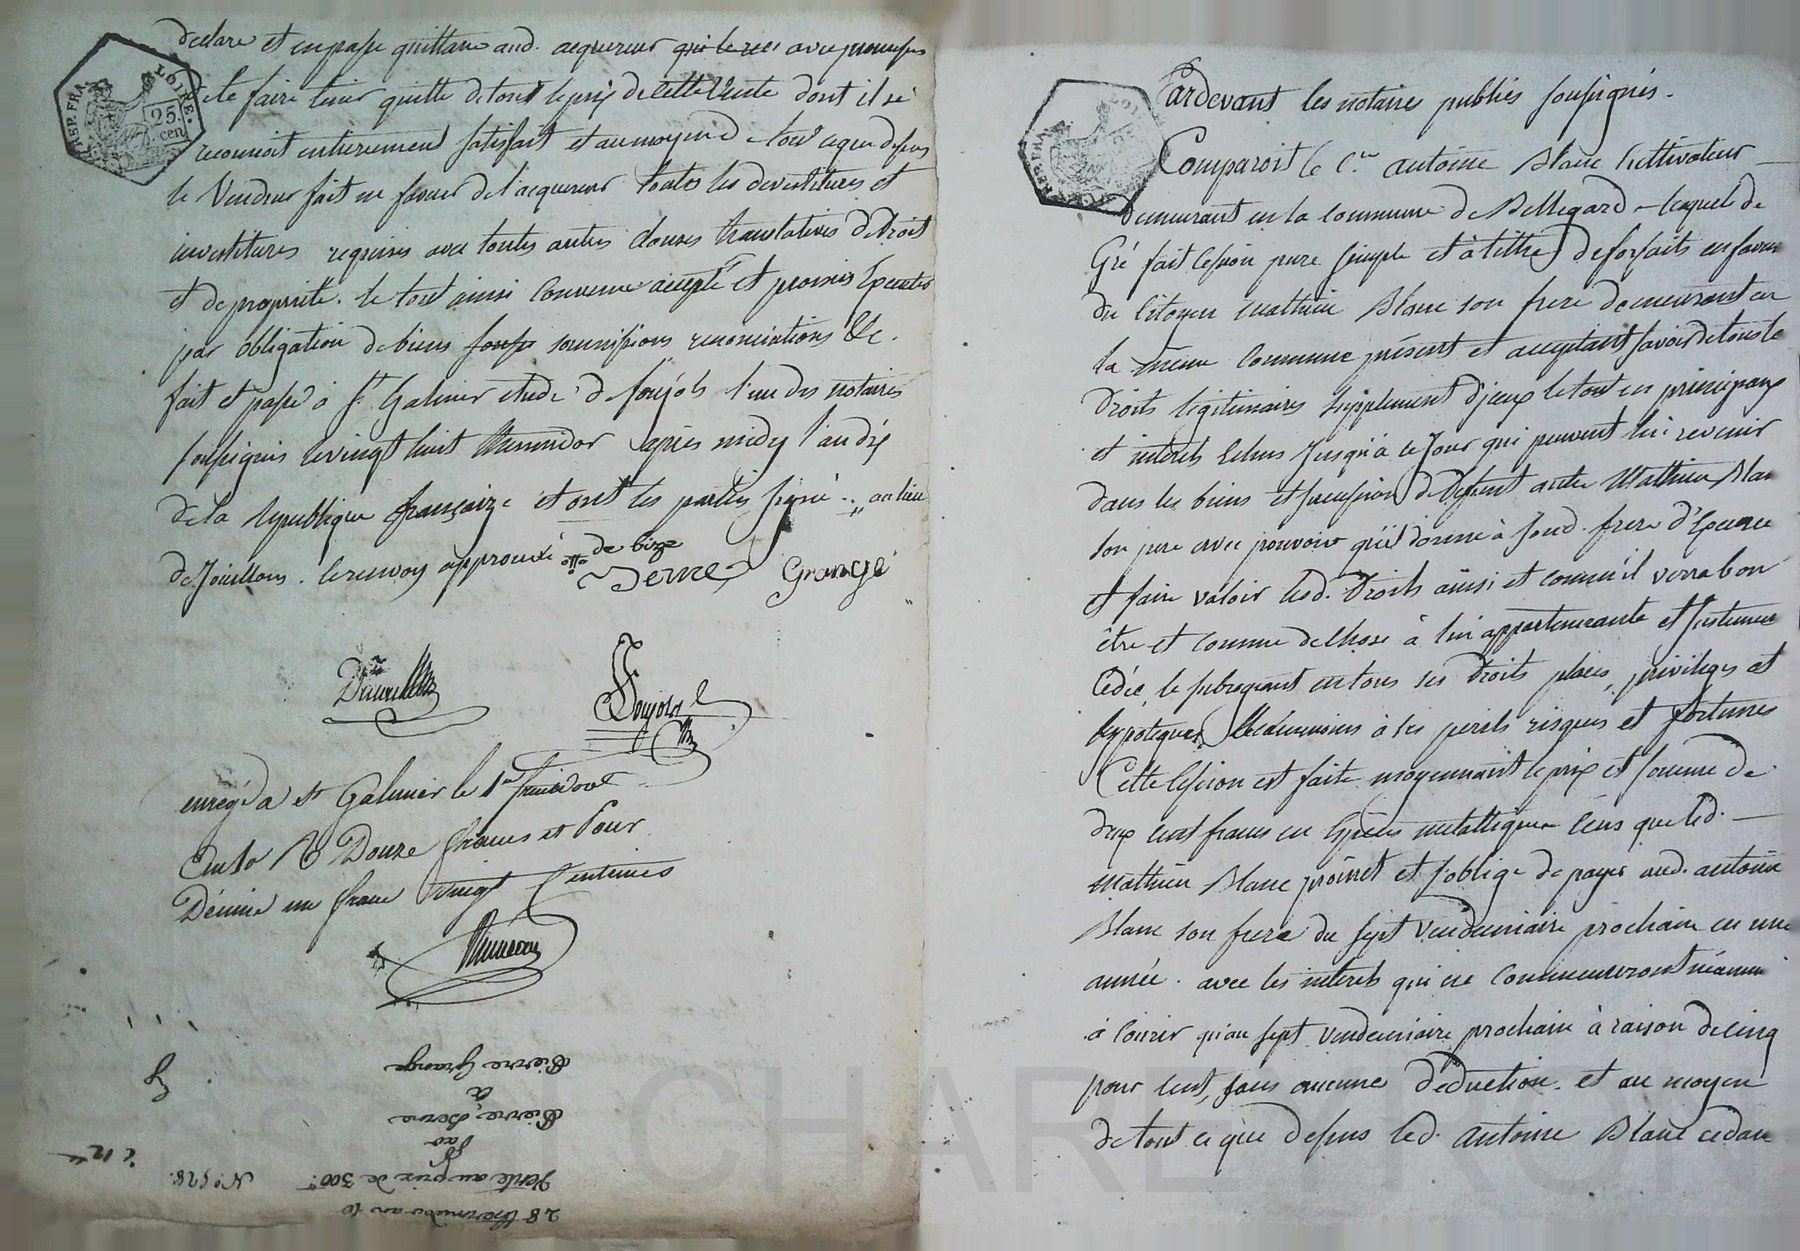 declare et en passe quittance aud. acquereur qui le rec avec promesses
de le faire tenir quitte de tout le prix de cette Vente dont il se
reconnoit entierement satisfait et au moyen de tout ce que dessus
le Vendeur fait en faveur de l'acquereur toutes les devestitures et
investitures requises avec toutes autres clauses translatives de droit
et de propriété. le tout ainsi convenu accepté et promis Executer
par obligation de biens soumissions renonciations &c.
fait et passé à St Galmier etude de Poujols l'un des notaires
soussignés le vingt huit thermidor après midy l'an dix
de la republique française et ont les parties signé. au lieu
de . le renvoy approuvé de bize
Berne Grangé
Poujols
enreg. a St Galmier le 1er fructidor
an 10 R Douze francs et Pour
Décime un franc vingt Centimes
28 thermidor an 10
Vente au prix de 300
N° 528.
Par
Pierre Berne
a
Pierre Grange
REP. FRA.
LOIRE.
25.
cen.
Pardevant les notaires publics soussignés.
Comparoit le Cen antoine Blanc Cultivateur
demeurant en la commune de Bellegard lequel de
Gré fait cession pure simple et à titre de forfaits en faveur
du Citoyen mathieu Blanc son frere demeurant en
la même commune présent et acceptant savoir de tous le
Droits légitimaires supplement d'jceux le tout en principaux
et interets echus jusqu'à ce jour qui peuvent lui revenir
dans les biens et succession de deffunt autre Mathieu Blan
son pere avec pouvoir qu'il donne à sond. frere d'Exercer
et faire valoir lesd. Droits ainsi et comme il verra bon
être et comme de chose à lui appartenante et justement
Cédée, le subrogeant en tous ses droits places, privileges et
hypoteques, Néanmoins à ses perils risques et fortunes
Cette Cession est faite moyennant le prix et somme de
deux cent francs en Especes metalliques Ceus que led.
Mathieu Blanc promet et s'oblige de payer aud. antoine
Blanc son frere du sept Vendemiaire prochain en une
année. avec les interets qui ne commenceront néanmoi
à courir qu'au sept vendemiaire prochain à raison de cinq
pour cent, sans aucune déduction. et au moyen
de tout ce que dessus led. antoine Blanc cedan
CHARLYRON